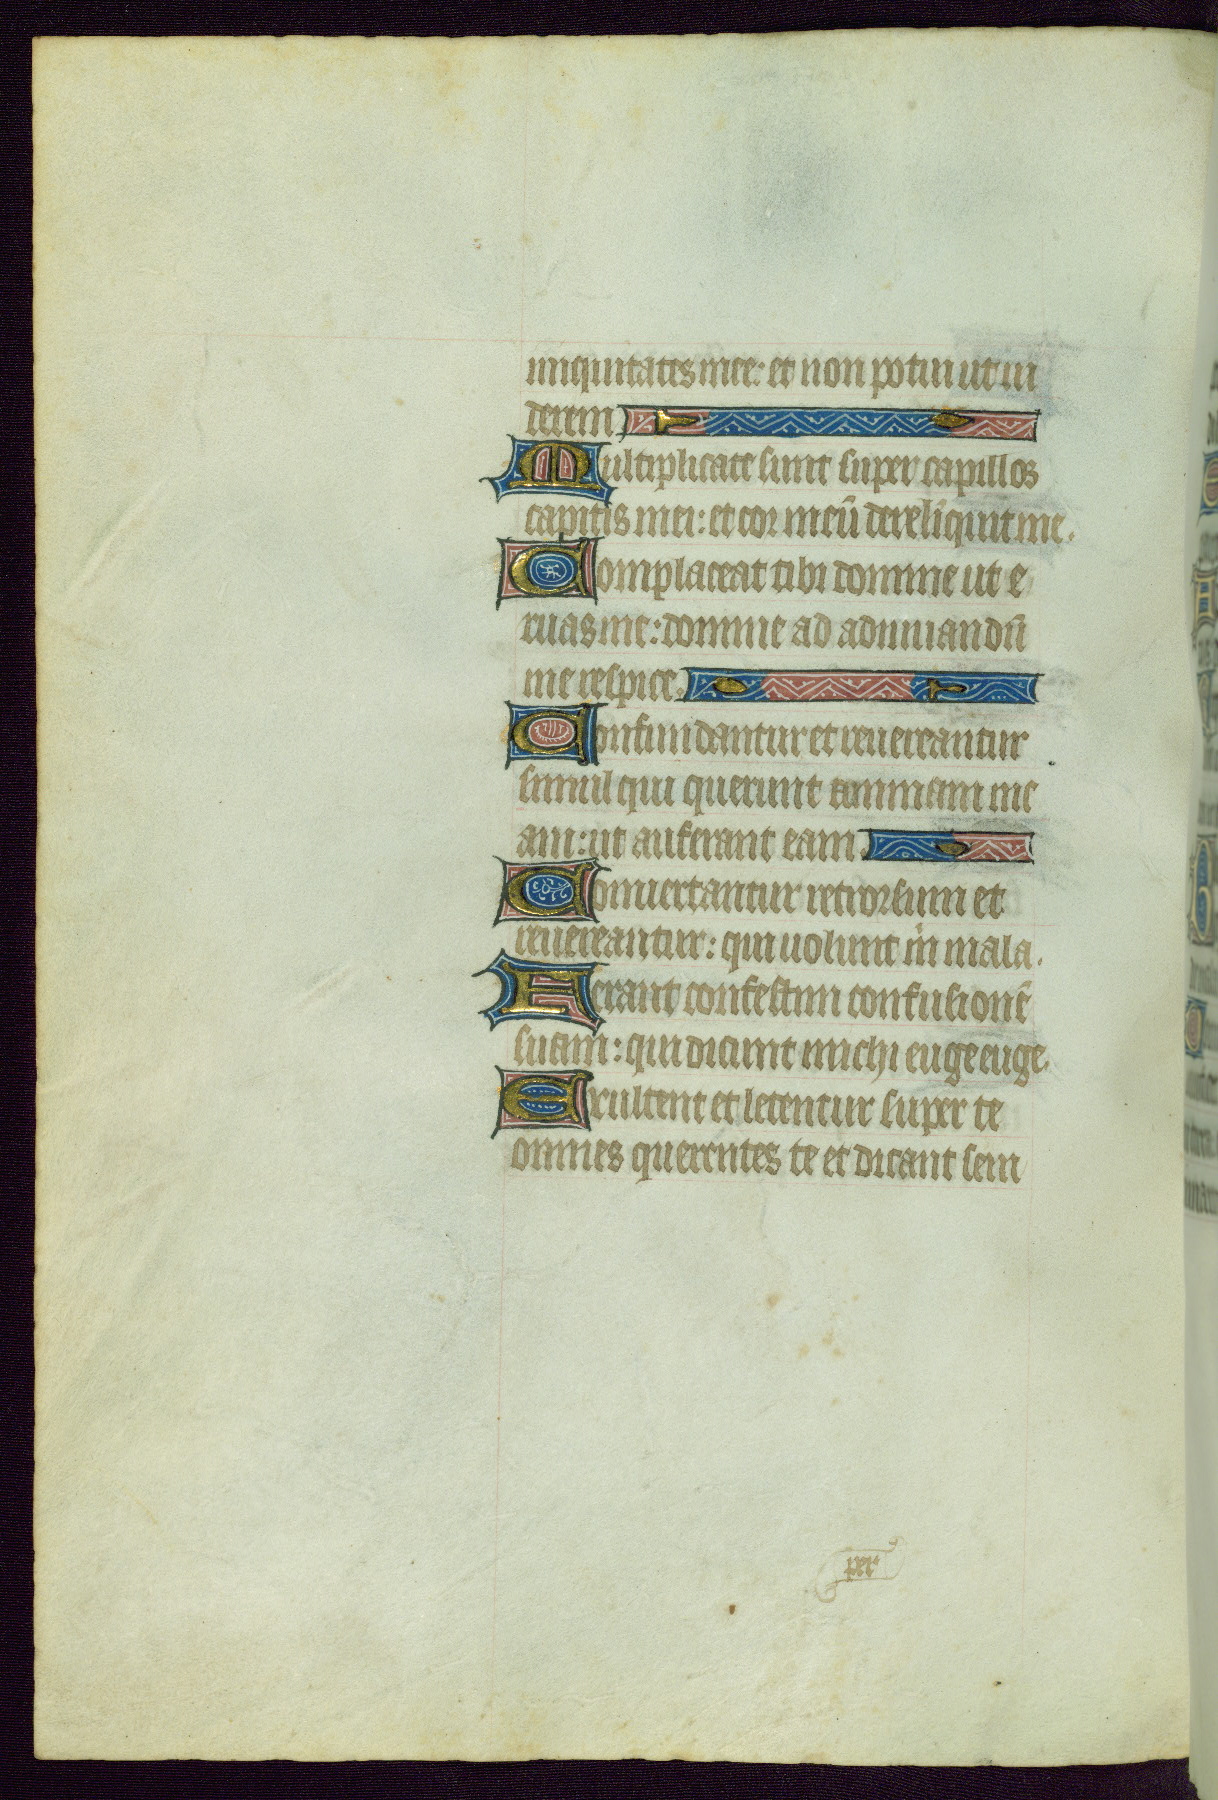 iniquitates mee: et non potui ut ui
derem
Multiplicate sunt super capillos
capitis mei: et cor meū dereliquit me.
Complaceat tibi domine ut e
ruas me: domine ad adiuuandū
me respice.
Confundantur et reuereantur
simul qui querunt animam me
am: ut auferant eam.
Conuertantur retrorsum et
reuereantur: qui uolunt m̍ mala.
Ferant confestim confusionē
suam: qui dicunt michi euge euge.
Exultent et letentur super te
omnes querentes te et dicant sem
per